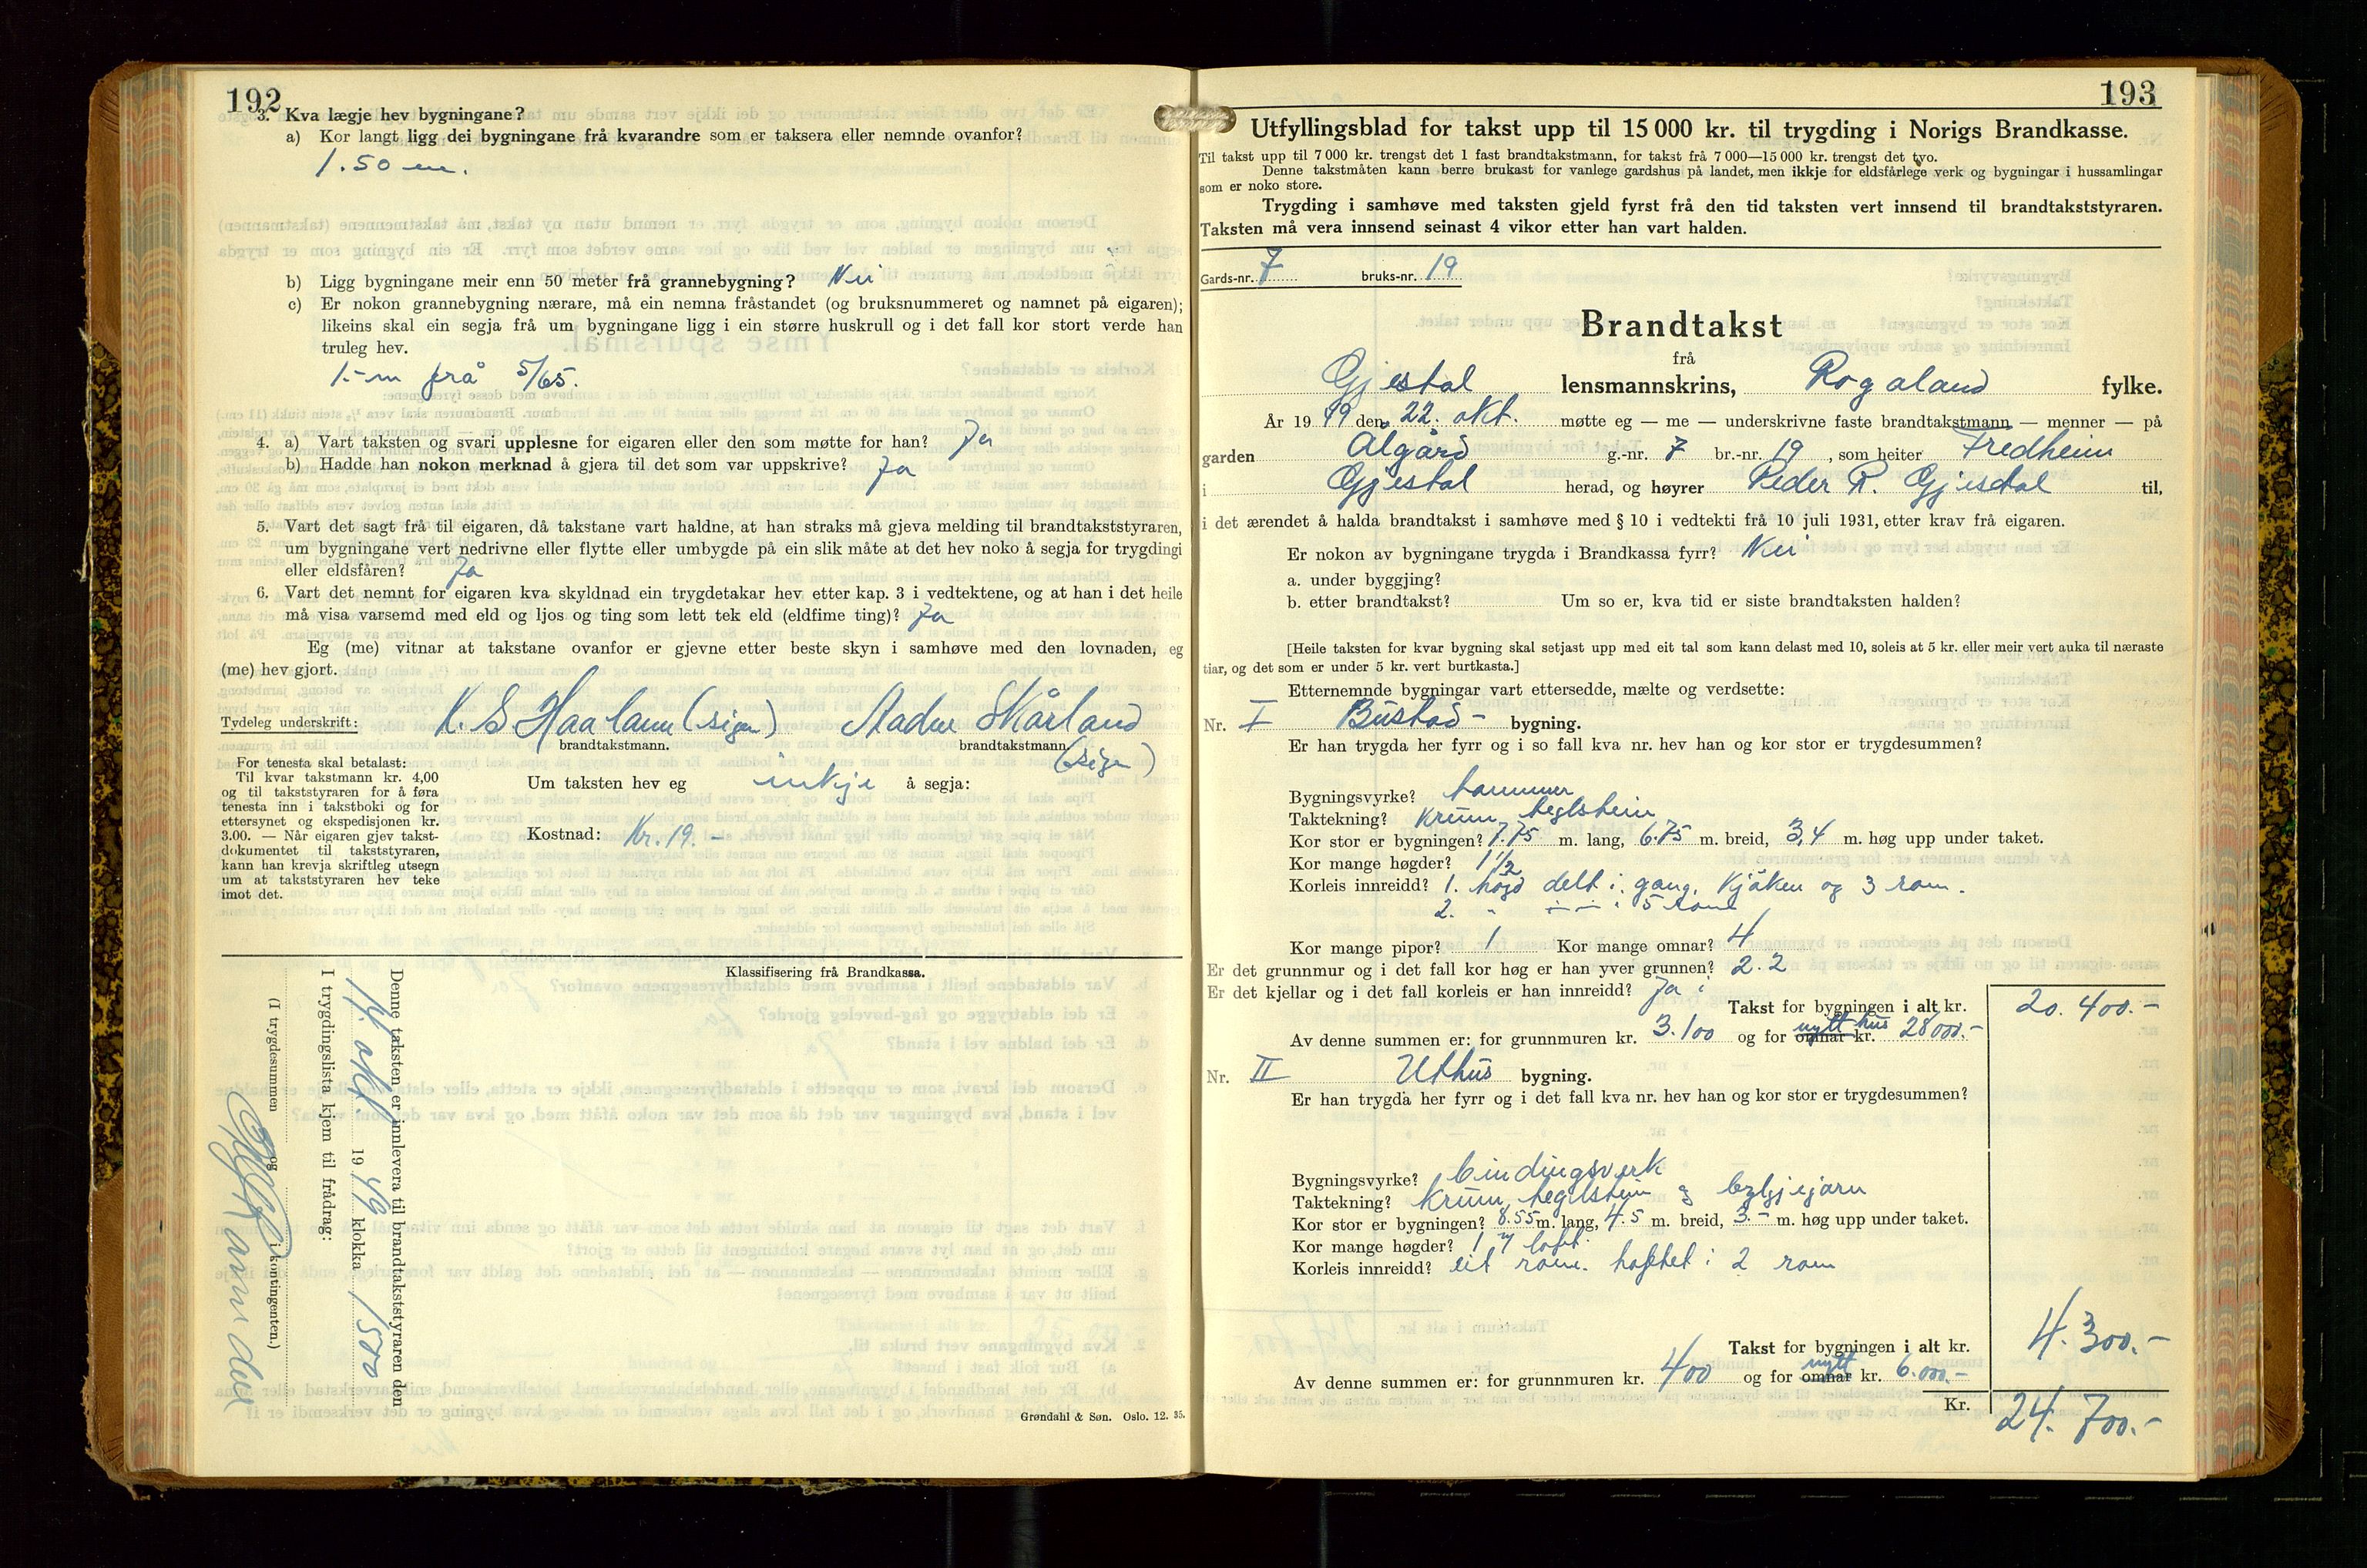 192
3. Kva lægje hev bygningane?
a) Kor langt ligg dei bygningane frå kvarandre som er taksera eller nemnde ovanfor?
1.50 m.
b) Ligg bygningane meir enn 50 meter frå grannebygning? Nei
c) Er nokon grannebygning nærare, må ein nemna fråstandet (og bruksnummeret og namnet på eigaren);
likeins skal ein segja frå um bygningane ligg i ein større huskrull og i det fall kor stort verde han
truleg hev.
1.- m frå 5/65.
4. a) Vart taksten og svari upplesne for eigaren eller den som møtte for han? Ja
b) Hadde han nokon merknad å gjera til det som var uppskrive? Ja
5. Vart det sagt frå til eigaren, då takstane vart haldne, at han straks må gjeva melding til brandtakststyraren,
um bygningane vert nedrivne eller flytte eller umbygde på ein slik måte at det hev noko å segja for trygdingi
eller eldsfåren? Ja
6. Vart det nemnt for eigaren kva skyldnad ein trygdetakar hev etter kap. 3 i vedtektene, og at han i det heile
må visa varsemd med eld og ljos og ting som lett tek eld (eldfime ting)? Ja
Eg (me) vitnar at takstane ovanfor er gjevne etter beste skyn i samhøve med den lovnaden, eg
(me) hev gjort.
Tydeleg underskrift: K. S Haaland (sign) Aadne Skårland
brandtakstmann. brandtakstmann.
(sign)
For tenesta skal betalast:
Til kvar takstmann kr. 4,00
og til takststyraren for å føra
tenesta inn i takstboki og for
ettersynet og ekspedisjonen kr.
3.00. — Når eigaren gjev takst-
dokumentet til takststyraren,
kann han krevja skriftleg utsegn
um at takststyraren hev teke
imot det.
Um taksten hev eg inkje å segja:
Kostnad: Kr. 19. -
Klassifisering frå Brandkassa.
Denne taksten er innlevera til brandtakststyraren den
okt. 1949 klokka 1500
I trygdingslista kjem til frådrag:
(I trygdesummen og i kontingenten.)
Grøndahl & Søn. Oslo. 12. 35.
193
Utfyllingsblad for takst upp til 15 000 kr. til trygding i Norigs Brandkasse.
Til takst upp til 7 000 kr. trengst det 1 fast brandtakstmann, for takst frå 7 000—15 000 kr. trengst det tvo.
Denne takstmåten kann berre brukast for vanlege gardshus på landet, men ikkje for eldsfårlege verk og bygningar i hussamlingar
som er noko store.
Trygding i samhøve med taksten gjeld fyrst frå den tid taksten vert innsend til brandtakststyraren.
Taksten må vera innsend seinast 4 vikor etter han vart halden.
Gards-nr. 7 bruks-nr. 19
Brandtakst
frå
Gjestal lensmannskrins, Rogaland fylke.
År 1949 den 22. okt. møtte eg — me — underskrivne faste brandtakstmann — menner — på
garden Ålgård g.-nr. 7 br.-nr. 19, som heiter Fredheim
i Gjestal herad, og høyrer Peder R. Gjesdal til,
i det ærendet å halda brandtakst i samhøve med § 10 i vedtekti frå 10 juli 1931, etter krav frå eigaren.
Er nokon av bygningane trygda i Brandkassa fyrr? Nei
a. under byggjing?
b. etter brandtakst? Um so er, kva tid er siste brandtaksten halden?
[Heile taksten for kvar bygning skal setjast upp med eit tal som kann delast med 10, soleis at 5 kr. eller meir vert auka til næraste
tiar, og det som er under 5 kr. vert burtkasta.]
Etternemnde bygningar vart ettersedde, mælte og verdsette:
Nr. I Bustad- bygning.
Er han trygda her fyrr og i so fall kva nr. hev han og kor stor er trygdesummen?
Bygningsvyrke? tømmer
Taktekning? Krum teglstein
Kor stor er bygningen? 7.75 m. lang, 6.75 m. breid, 3,4 m. høg upp under taket.
Kor mange høgder? 1 1/2
Korleis innreidd? 1. høgd delt i gang, kjøken og 3 rom.
2. " — " — i 5 rom
Kor mange pipor? 1 Kor mange omnar? 4
Er det grunnmur og i det fall kor høg er han yver grunnen? 2.2
Er det kjellar og i det fall korleis er han innreidd? Ja i
Takst for bygningen i alt kr. 20.400.-
Av denne summen er: for grunnmuren kr. 3.100 og for omnar nytt hus kr. 28000.-
Nr. II Uthus bygning.
Er han trygda her fyrr og i det fall kva nr. hev han og kor stor er trygdesummen?
Bygningsvyrke? bindingsverk
Taktekning? Krum teglstein og bylgjejarn
Kor stor er bygningen? 8.55 m. lang, 4.5 m. breid, 3.- m. høg upp under taket.
Kor mange høgder? 1 m loft
Korleis innreidd? eit rom. loftet i 2 rom
Takst for bygningen i alt kr. 4.300.-
Av denne summen er: for grunnmuren kr. 400 og for omnar nytt kr. 6.000.-
Kr. 24.700.-